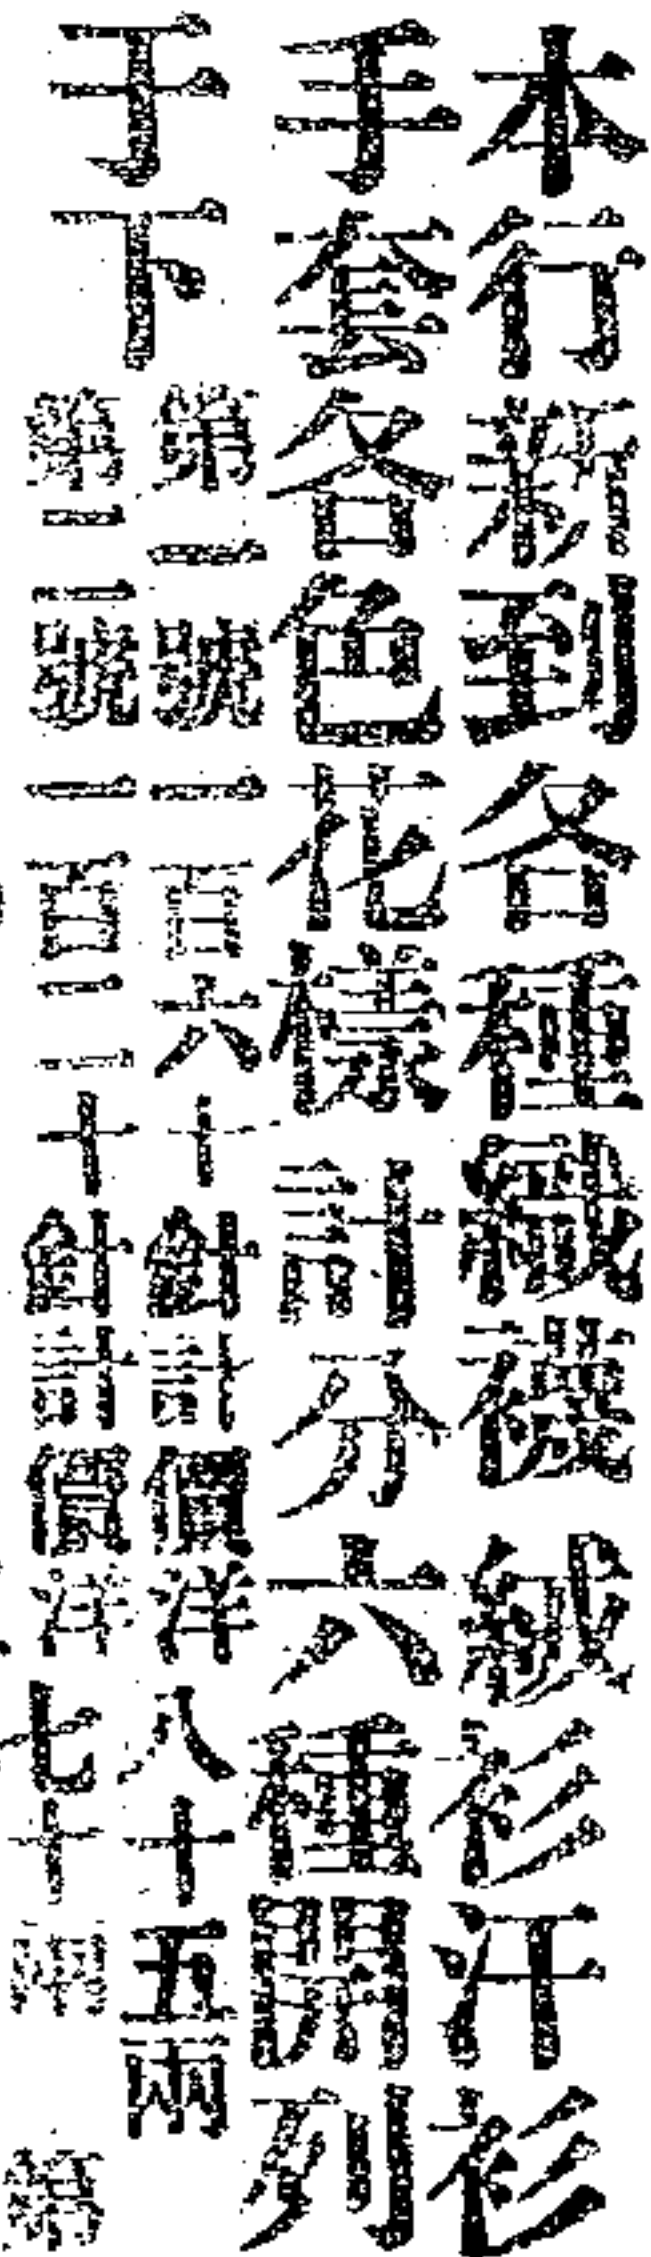 本行新到各種織襪絨衫汗衫
手套各色花樣計分六種開列
于下
第一號一百六十針計價洋八十五兩
第二號一百二十針計價洋七十兩 第